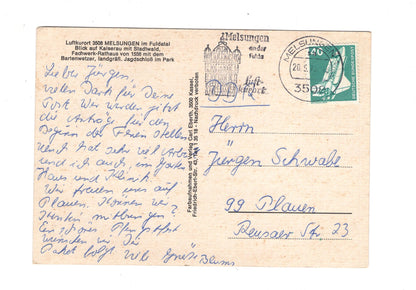 Luftkurort 3508 MELSUNGEN im Fuldatal
Blick auf Kaiserau mit Stadtwald,
Fachwerk-Rathaus von 1556 mit dem
Bartenwetzer, landgräfl. Jagdschloß im Park
Lieber Jürgen,
vielen Dank für Deine
Post. Wir werden jetzt
die Anträge für den
Beginn der Ferien stellen.
Uwe hat sehr viel Arbeit
und ich auch, im Garten
Haus und Klinik.
Wir freuen uns auf
Plauen. Können wir
mitbringen?
Ein schönes Pfingstfest
wünschen wir Dir
Paket folgt. Viele Grüße Blums
Farbaufnahmen und Verlag Carl Eberth, 3500 Kassel,
Friedrich-Ebert-Str. 42, Nachdruck verboten
Melsungen
an der
Fulda
Luft-
kurort
MELSUNGEN
3508
Herrn
Jürgen Schwabe
99 Plauen
Reusaer Str. 23